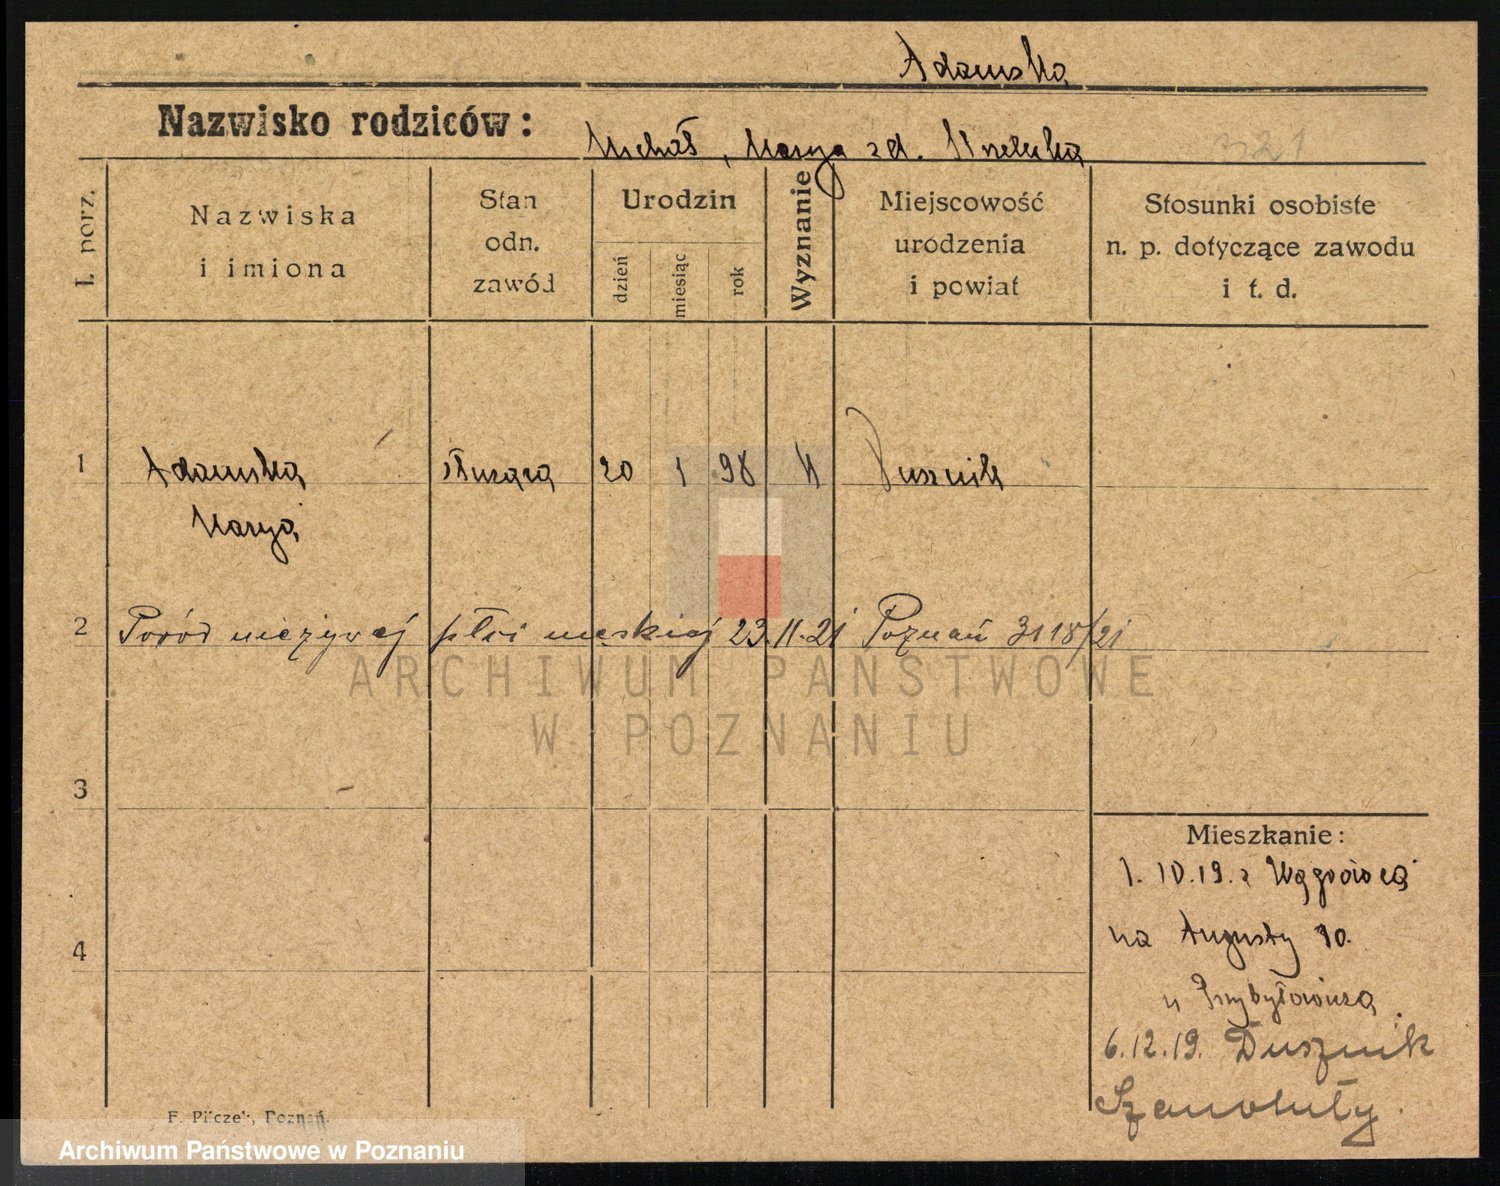 Adamska
Nazwisko rodziców:
Michał, Marya zd.
321
L. porz.
Nazwiska
i imiona
Stan
odn.
zawód
Urodzin
dzień
miesiąc
rok
Wyznanie
Miejscowość
urodzenia
i powiat
Stosunki osobiste
n. p. dotyczące zawodu
i t. d.
1 Adamska służąca 20 1 98 K Dusznik
Marya
2 Poród nieżywej płci męskiej 23.11.21 Poznań 3118/21
ARCHIWUM PAŃSTWOWE
W POZNANIU
3
Mieszkanie:
1.10.19. z Wągrówca
na Augusty 10.
u
6.12.19. Dusznik
Szamotuły.
4
F. Pilczek, Poznań.
Archiwum Państwowe w Poznaniu